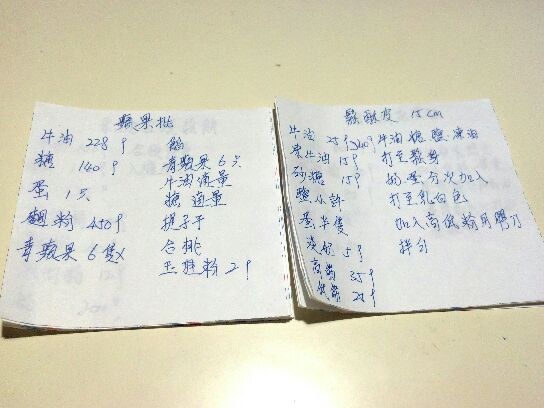 蘋果批
牛油 228g
糖 140g
蛋 1只
麵粉 450g
青蘋果 6隻x
餡
青蘋果 6只
牛油適量
糖 適量
提子干
合桃
玉桂粉 2g
鬆酥皮 15cm
牛油 25g
菜牛油 15g
砂糖 15g
鹽少許
蛋半隻
淡奶 5g
高筋 35g
低筋
牛油 糖 鹽
打至鬆身
奶 蛋 分次加入
打至乳白色
加入高低粉用膠刀
拌勻